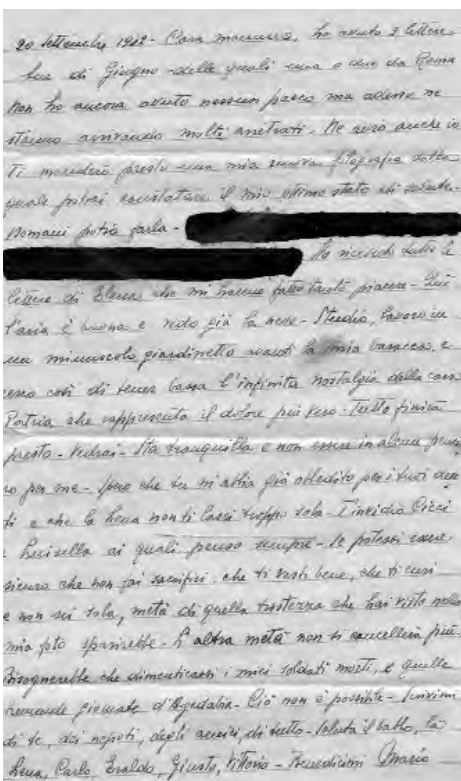 20 settembre 1942 - Cara mamma, ho avuto 3 lettere
due di Giugno delle quali una o due da Roma
Non ho ancora avuto nessun pacco ma adesso ne
stanno arrivando molti arretrati. Ne avrò anche io
Ti manderò presto una mia nuova fotografia dalla
quale potrai constatare il mio ottimo stato di salute.
Domani potrò farla -
Ho ricevuto tutte le
lettere di Elena che mi hanno fatto tanto piacere - Qui
l'aria è buona e vedo già la neve - Studio, lavoro in
un minuscolo giardinetto avanti la mia baracca, e
cerco così di tener bassa l'infinita nostalgia della cara
Patria che rappresenta il dolore più vero - Tutto finirà
presto - Vedrai - Sta tranquilla e non essere in alcun pensie
ro per me - Spero che tu mi abbia già obbedito per i tuoi den
ti e che la Lena non ti lasci troppo sola - T'invidio Cicci
e Luisella ai quali penso sempre - Se potessi essere
sicuro che non fai sacrifici, che ti vesti bene, che ti curi
e non sei sola, metà di quella tristezza che hai visto nella
mia foto sparirebbe - L'altra metà non si cancellerà più.
Bisognerebbe che dimenticassi i miei soldati morti, e quelle
tremende giornate d' Ciò non è possibile - Scrivimi
di te, dei nepoti, degli amici, di tutto - Saluta il babbo, la
Lena, Carlo, Eraldo, Giusto, Vittorio - Benedicimi Mario